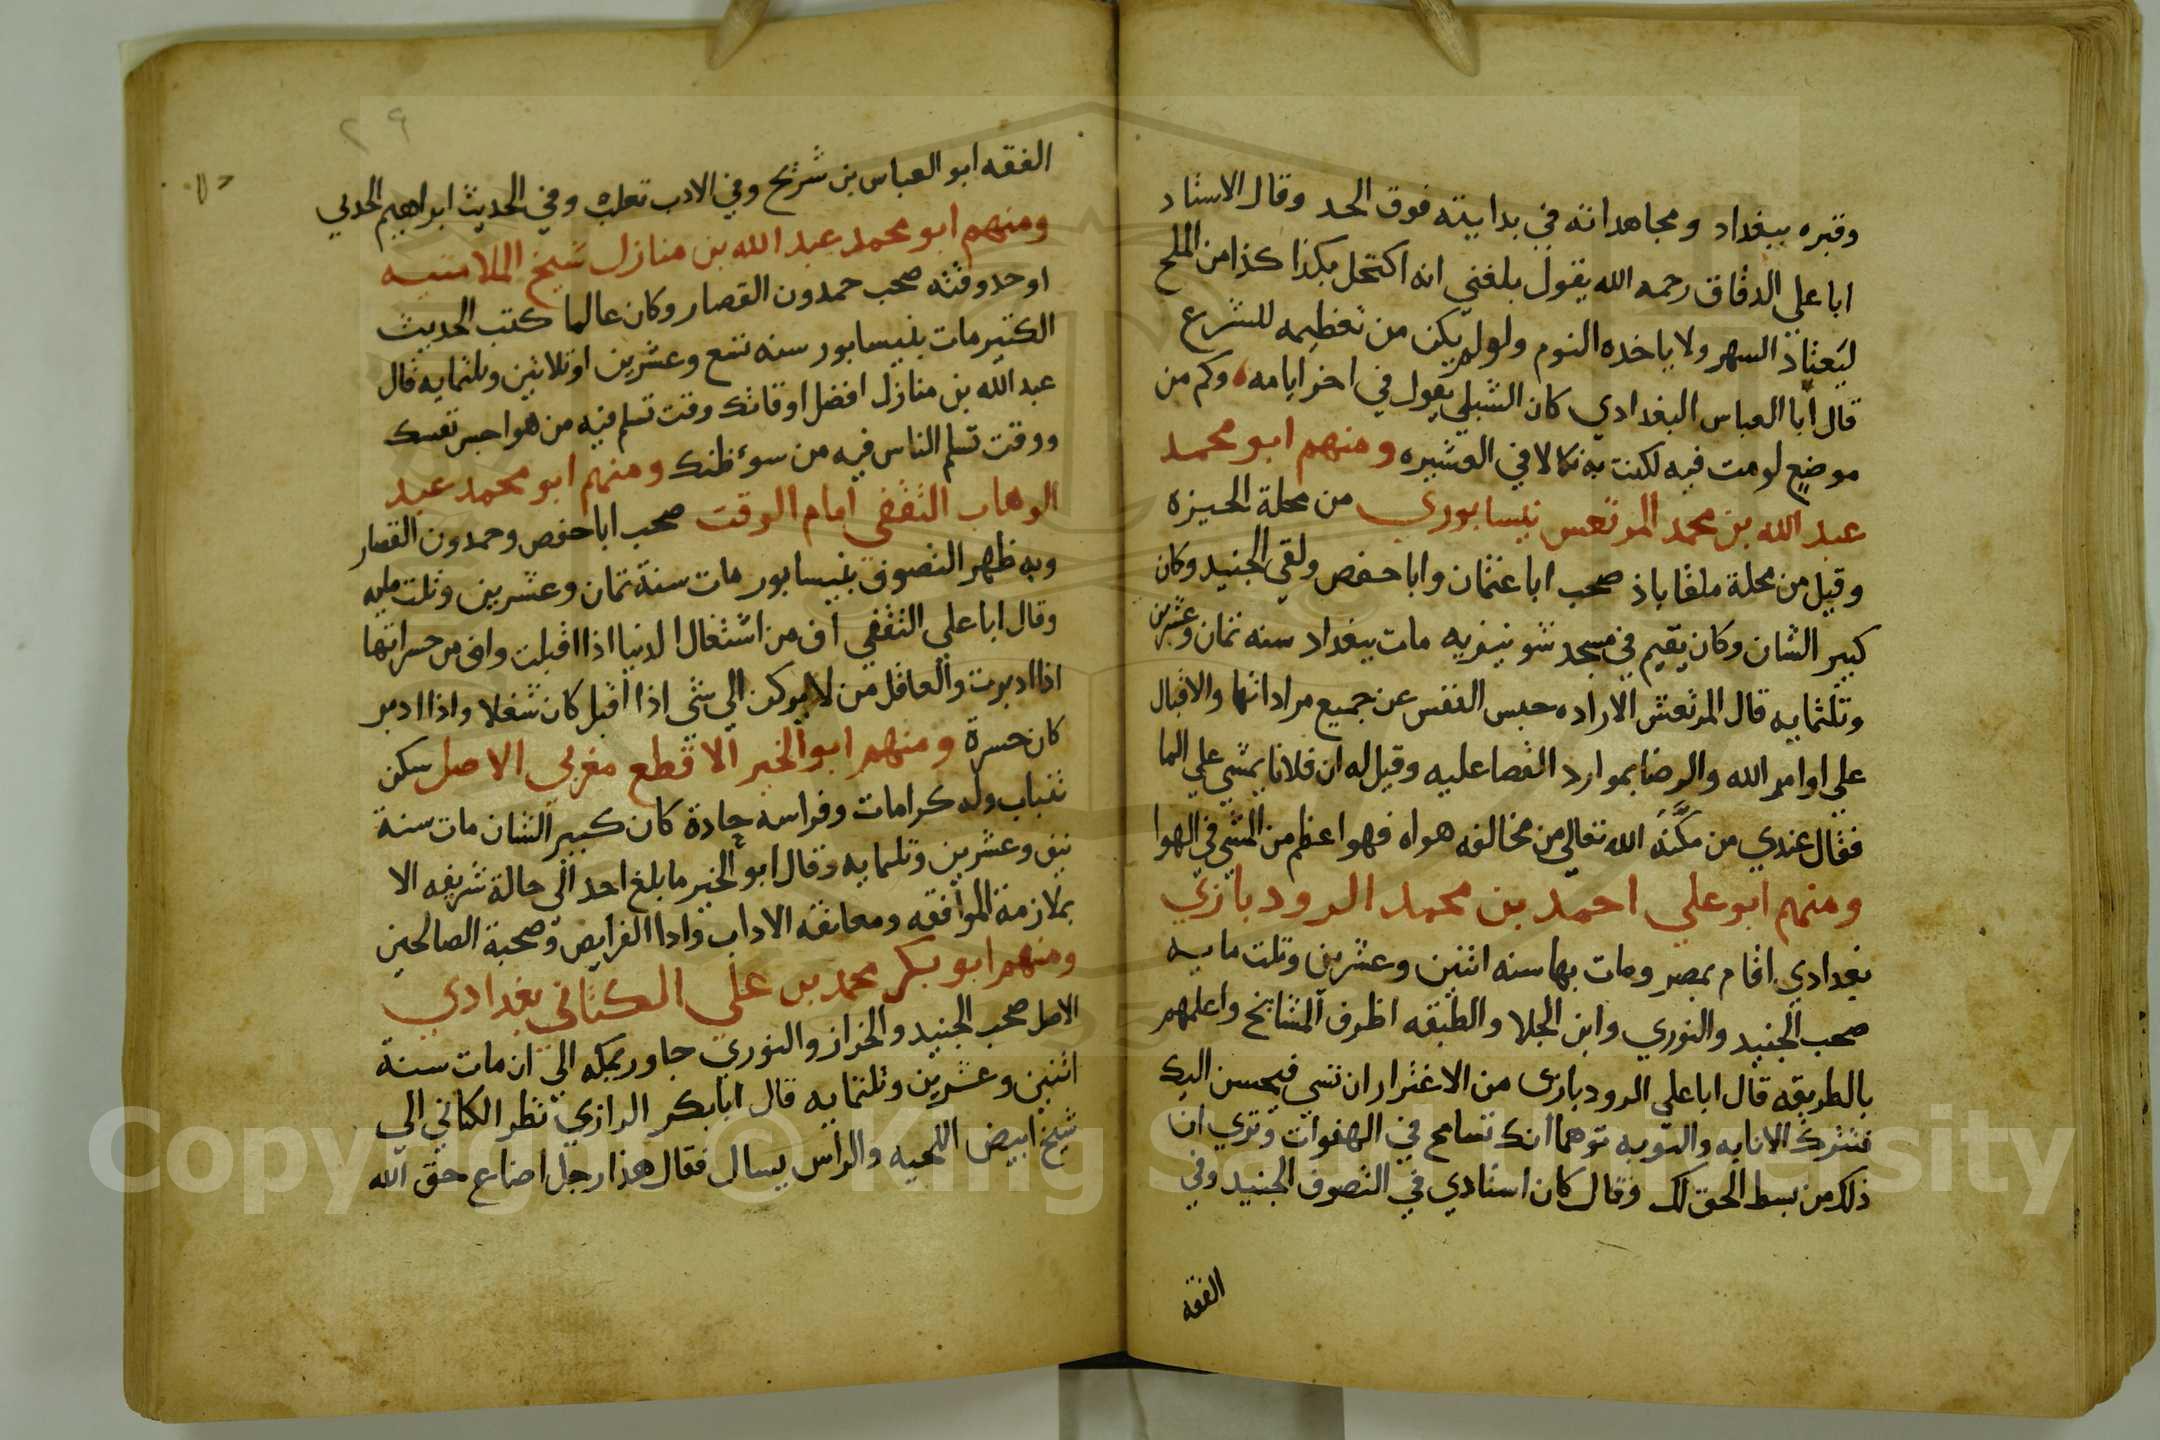 وقبره ببغداد ومجاهداته في بدايته فوق الحد وقال الاستاد
ابا علي الدقاق رحمه الله يقول بلغني انه اكتحل بكذا كذا من الملح
ليعتاد السهر ولا ياخده النوم ولو لم يكن من تعظيمه للشرع
قال ابا العباس البغدادي كان الشبلي يقول في اخر ايامه وكم من
موضع لو مت فيه لكنت به نكالا في العشيره ومنهم ابو محمد
عبد الله بن محمد المرتعس نيسابوري من محلة الحيزه
وقيل من محلة ملقاباذ صحب ابا عثمان وابا حفص ولقي الجنيد وكان
كبير الشان وكان يقيم في مسجد شونيزيه مات ببغداد سنه ثمان وعشرين
وثلثمايه قال المرتعش الاراده حبس النفس عن جميع مراداتها والاقبال
علي اوامر الله والرضا بموارد القضا عليه وقيل له ان فلانا يمشي علي الما
فقال عندي من مكّنه الله تعالي من مخالفه هواه فهو اعظم من المشي في الهوا
ومنهم ابو علي احمد بن محمد الرودباري
بغدادي اقام بمصر ومات بها سنه اثنين وعشرين وثلت مايه
صحب الجنيد والنوري وابن الجلا والطبقه اظرف المشايخ واعلمهم
بالطريقه قال ابا علي الرودباري من الاغترار ان تسي فيحسن اليك
فتترك الانابه والتوبه توهما انك تسامح في الهفوات وتري ان
ذلك من بسط الحق لك وقال كان استادي في التصوف الجنيد وفي
الفقه
٢٩
الفقه ابو العباس بن شريح وفي الادب تعلب وفي الحديث ابراهيم الحدبي
ومنهم ابو محمد عبد الله بن منازل شيخ الملامتيه
اوحد وقته صحب حمدون القصار وكان عالما كتب الحديث
الكتير مات بنيسابور سنه تسع وعشرين او ثلاثين وثلثمايه قال
عبد الله بن منازل افضل اوقاتك وقت تسلم فيه من هواجس نفسك
ووقت تسلم الناس فيه من سوء ظنك ومنهم ابو محمد عبد
الوهاب الثقفي امام الوقت صحب ابا حفص وحمدون القصار
وبه ظهر التصوف بنيسابور مات سنة ثمان وعشرين وثلت مايه
وقال ابا علي الثقفي اف من اشتغال الدنيا اذا اقبلت واف من حسراتها
اذا ادبرت والعاقل من لا يركن الي شي اذا اقبل كان شغلا واذا ادبر
كان حسرة ومنهم ابو الخير الاقطع مغربي الاصل سكن
تنبات وله كرامات وفراسه حادة كان كبير الشان مات سنة
نيف وعشرين وتلمايه وقال ابو الخير ما بلغ احد الي حالة شريفه الا
بملازمة الموافقه ومعانقه الاداب وادا الفرايض وصحبة الصالحين
ومنهم ابو بكر محمد بن علي الكتاني بغدادي
الاصل صحب الجنيد والخراز والنوري جاور بمكه الي ان مات سنة
اثنين وعشرين وثلثمايه قال ابا بكر الرازي نظر الكتاني الي
شيخ ابيض اللحيه والراس يسال فقال هذا رجل اضاع حق الله
Copyright © King Saud University